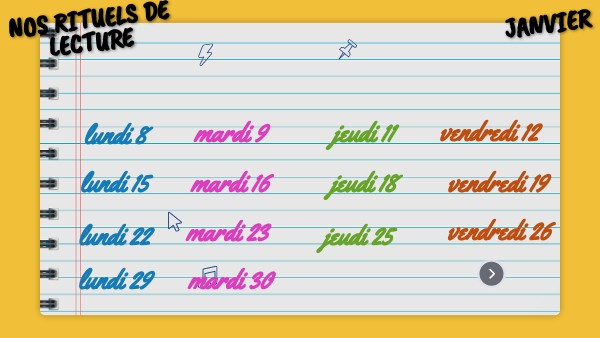 NOS RITUELS DE
LECTURE
JANVIER
lundi 8 mardi 9 jeudi 11 vendredi 12
lundi 15 mardi 16 jeudi 18 vendredi 19
lundi 22 mardi 23 jeudi 25 vendredi 26
lundi 29 mardi 30